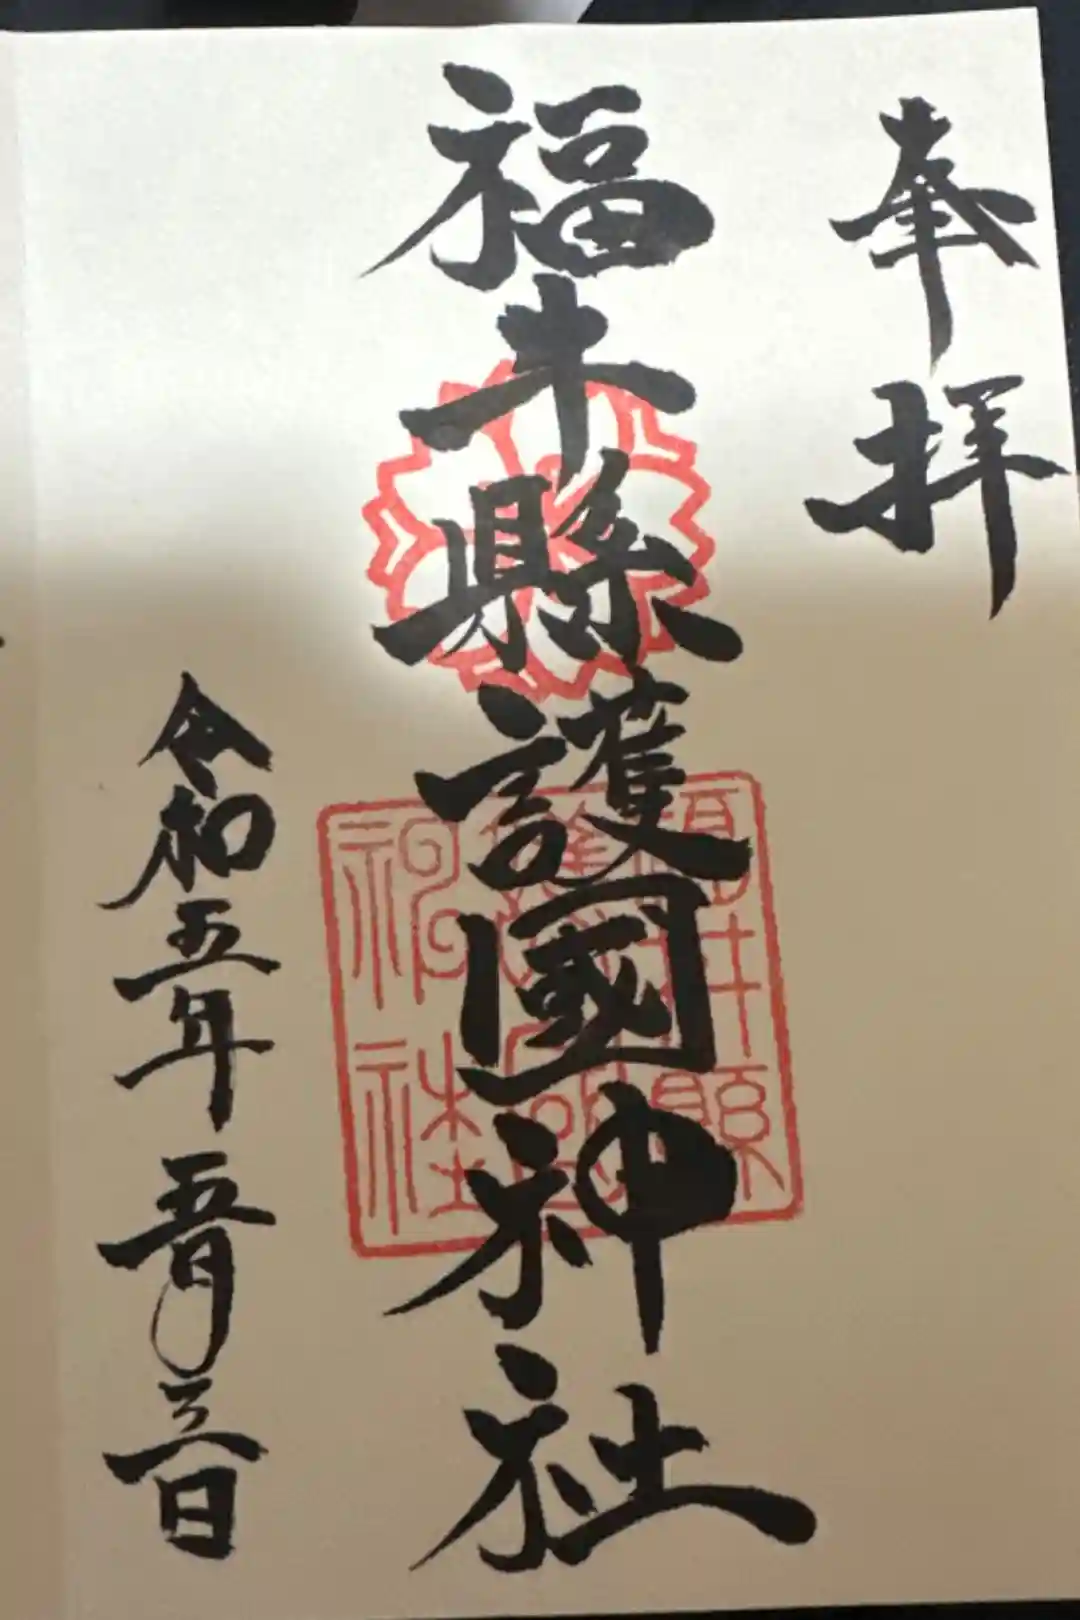 奉拝
福井縣護國神社
福井縣
護國
神社
令和五年五月三日